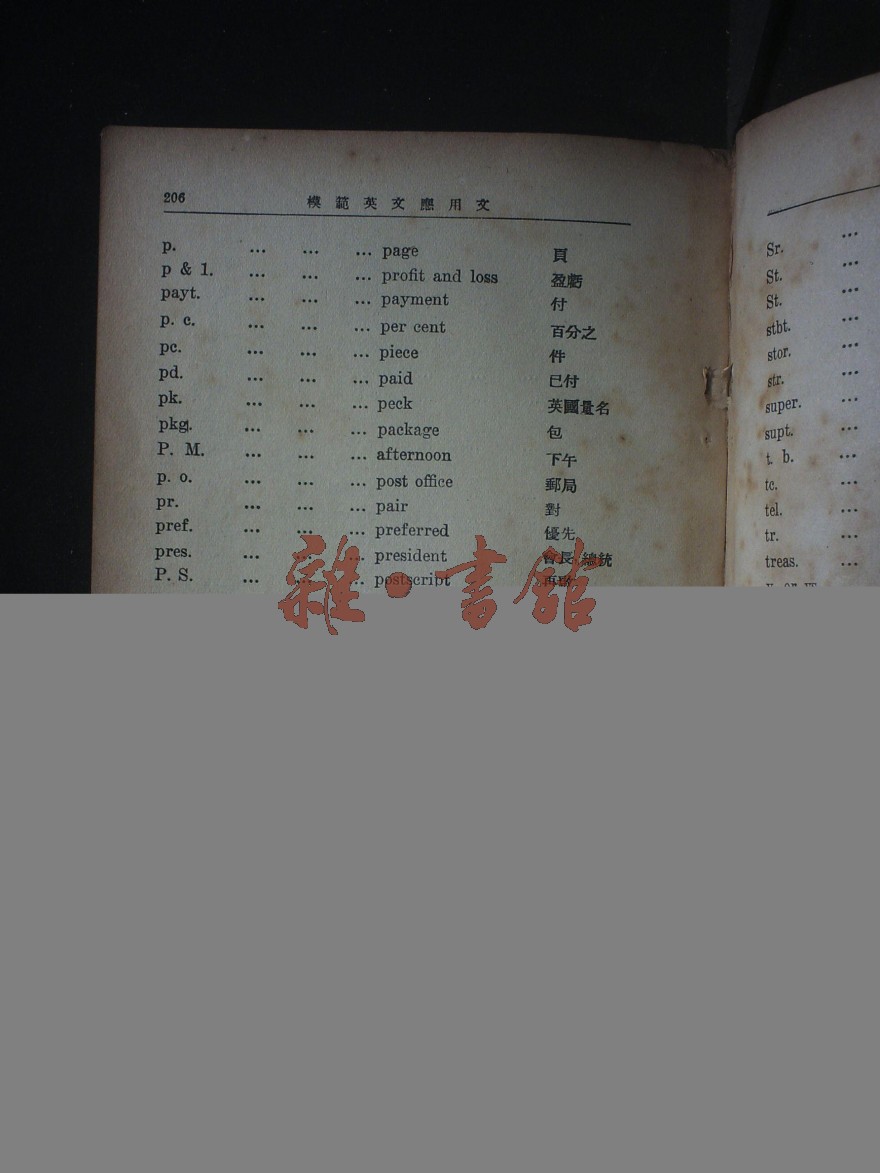 206 模範英文應用文
p. ... ... ... page 頁
p & l. ... ... ... profit and loss 盈虧
payt. ... ... ... payment 付
p. c. ... ... ... per cent 百分之
pc. ... ... ... piece 件
pd. ... ... ... paid 已付
pk. ... ... ... peck 英國量名
pkg. ... ... ... package 包
P. M. ... ... ... afternoon 下午
p. o. ... ... ... post office 郵局
pr. ... ... ... pair 對
pref. ... ... ... preferred 優先
pres. ... ... ... president 會長,總統
P. S. ... ... ... postscript
雜·書館
Sr. ...
St. ...
St. ...
stbt. ...
stor. ...
str. ...
super. ...
supt. ...
t. b. ...
tc. ...
tel. ...
tr. ...
treas. ...